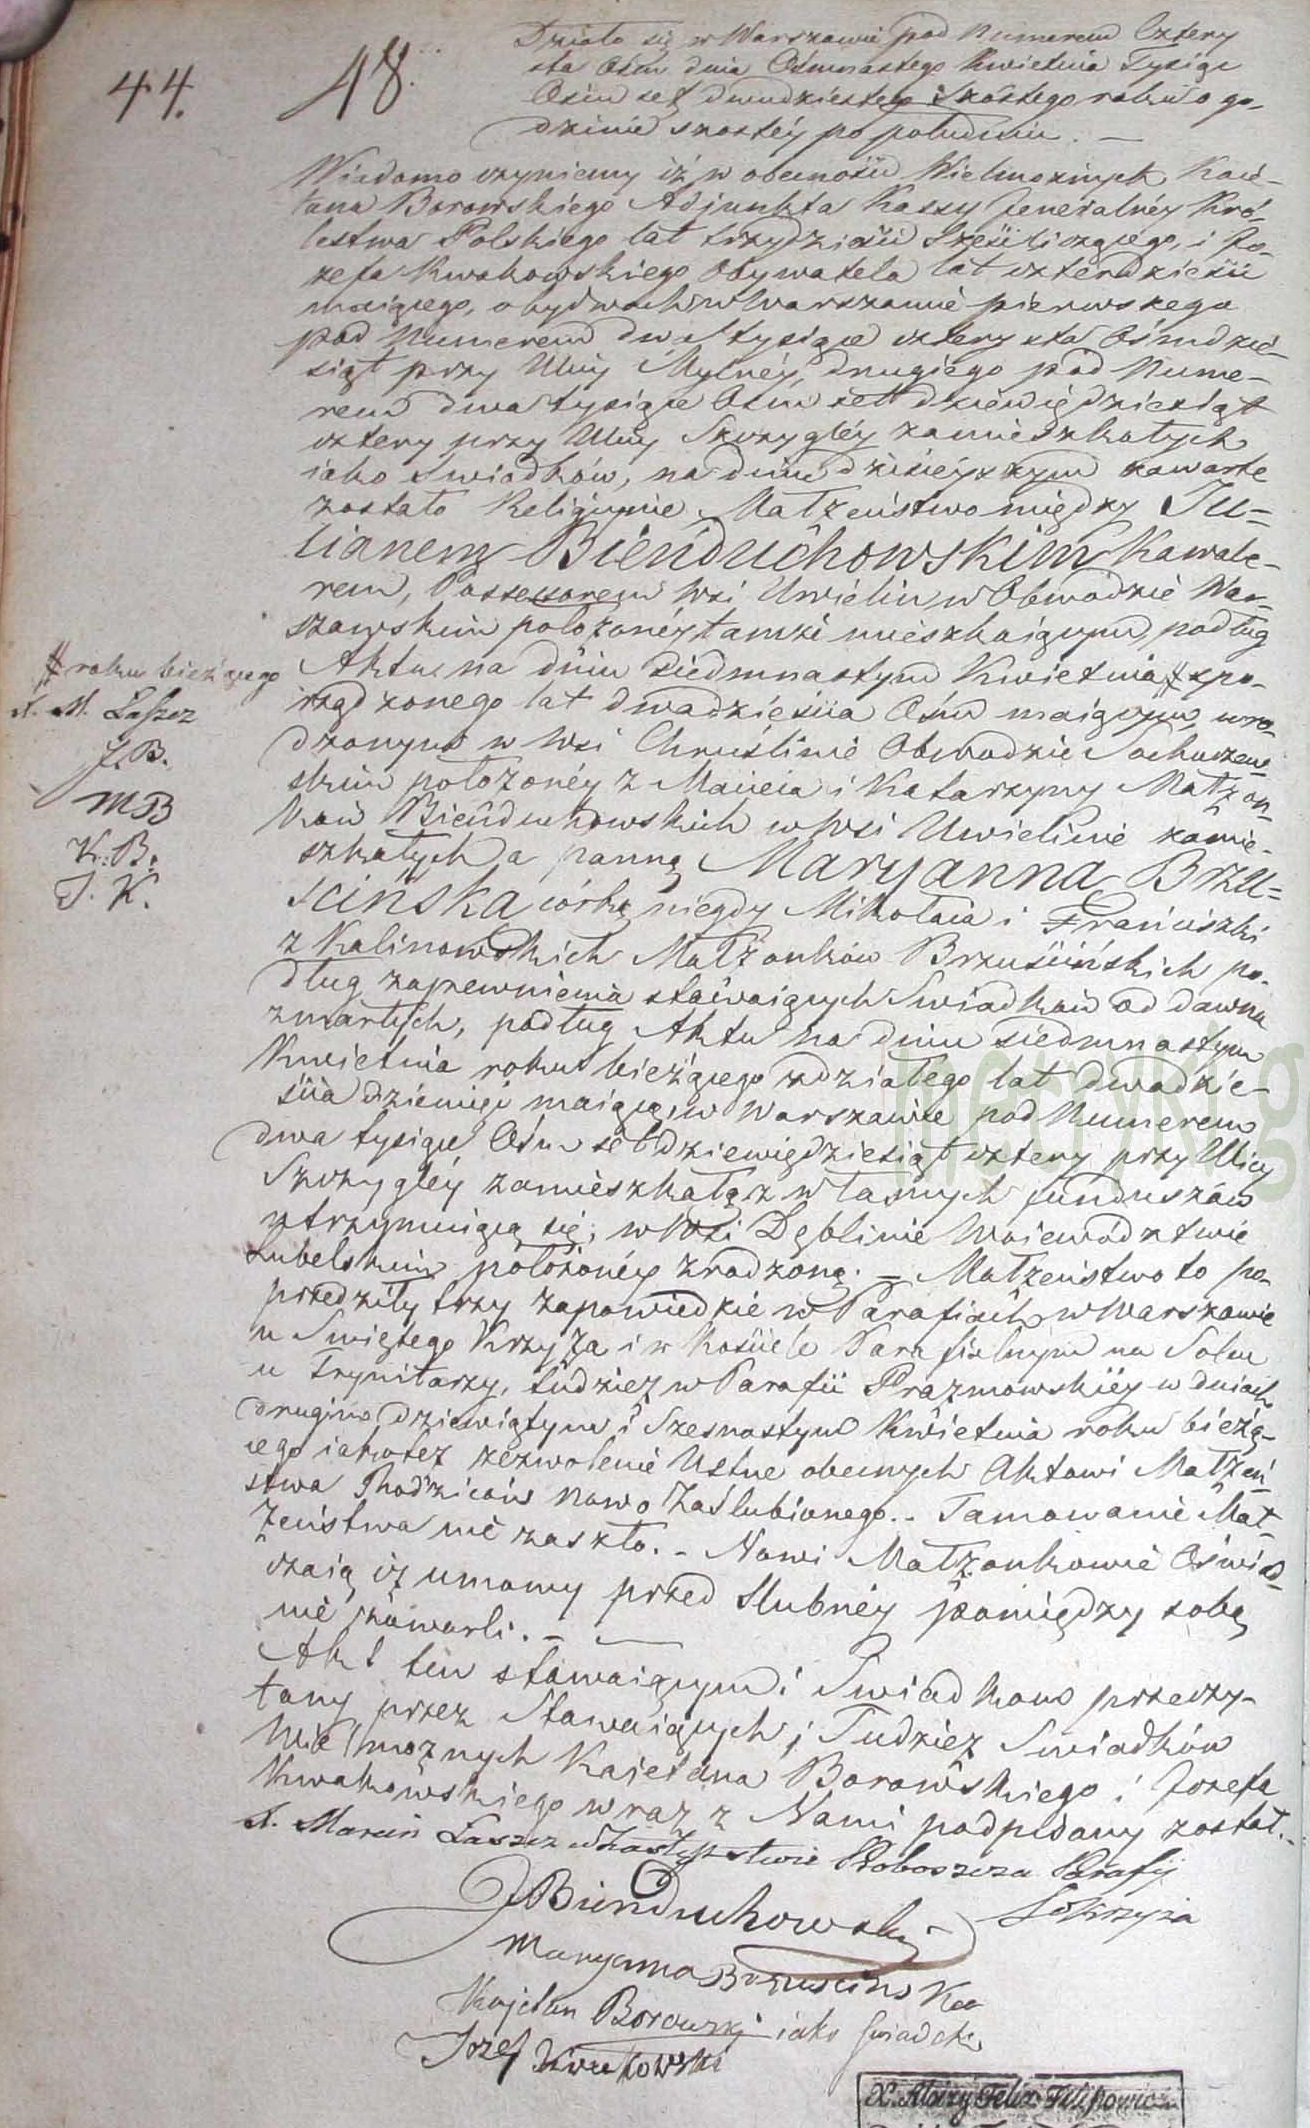 44.
48.
Działo się w Warszawie pod Numerem Cztery
sta Ośm dnia Ośmnastego Kwietnia Tysiąc
Ośm set dwudziestego Szóstego roku o go-
dzinie szóstéy po południu. —
Wiadomo czyniemy iż w obecności Wielmożnych Kaie-
tana Borowskiego Adjunkta Kassy Jeneralnéy Kró-
lestwa Polskiego lat trzydzieści Sześć liczącego, i Jó-
zefa Kwakowskiego Obywatela lat czterdzieści
maiącego, obydwóch w Warszawie pierwszego
pod Numerem dwa tysiące cztery sta Ośmdzie-
siąt przy Ulicy Mylnéy, drugiego pod Nume-
rem dwa tysiące Ośm set dziewiędziesiąt
cztery przy Ulicy Szczygléy zamieszkałych
iako Swiadków, na dniu dzisieyszym zawarte
zostało Religijnie Małżeństwo między Ju-
lianem Bieńduchowskim Kawale-
rem, Possessorem Wsi Uwielin w Obwodzie War-
szawskim położonéy tamże mieszkaiącym, podług
Aktu na dniu siedmnastym Kwietnia # spo-
# roku bieżącego
X. M. Łaszcz
J. B.
M B
K. B.
J. K.
rządzonego lat dwadzieścia Ośm maiącym, uro-
dzonym w Wsi Chruślinie Obwodzie Sochaczew-
skim położonéy z Macieia i Katarzyny Małżon-
ków Bieńduchowskich w Wsi Uwielinie zamie-
szkałych, a panną Maryanną Brzu-
ścińską córką niegdy Mikołaia i Franciszki
z Kalinowskich Małżonków Brzuścińskich po-
dług zapewnienia stawaiących Swiadków od dawna
zmarłych, podług Aktu na dniu siedmnastym
Kwietnia roku bieżącego zdziałego lat dwadzie-
ścia dziewięć maiącą, w Warszawie pod Numerem
dwa tysiące Ośm set dziewiędziesiąt cztery przy Ulicy
Szczygléy zamieszkałą z własnych funduszów
utrzymuiącą się; w Wsi Dęblinie Woiewództwie
Lubelskim położonéy zrodzoną. — Małżeństwo to po-
przedziły trzy zapowiedzie w Parafiach w Warszawie
u Swiętego Krzyża i w Kościele Parafialnym na Solcu
u Trynitarzy, tudzież w Parafii Prażmowskiéy w dniach
drugim dziewiątym i Szesnastym Kwietnia roku bieżą-
cego iakoteż zezwolenie Ustne obecnych Aktowi Małżeń-
stwa Rodziców nowo Zaślubionego. - Tamowanie Mał-
żeństwa nie zaszło. - Nowi Małżonkowie Oświad-
czaią iż umowy przed Slubnéy pomiędzy sobą
nie zawarli. —
Akt ten stawaiącym i Swiadkom przeczy-
tany przez Stawaiących, Tudzież Swiadków
Wielmożnych Kaietana Borowskiego i Józefa
Kwakowskiego wraz z Nami podpisany został. -
X. Marcin Łaszcz w Zastępstwie Proboszcza Parafij
S° Krzyża
J Bienduchowski
Maryanna Brzuscinska
Kajetan Borowski iako swiadek
Józef Kwakowski
X. Alojzy Felix Filipowicz